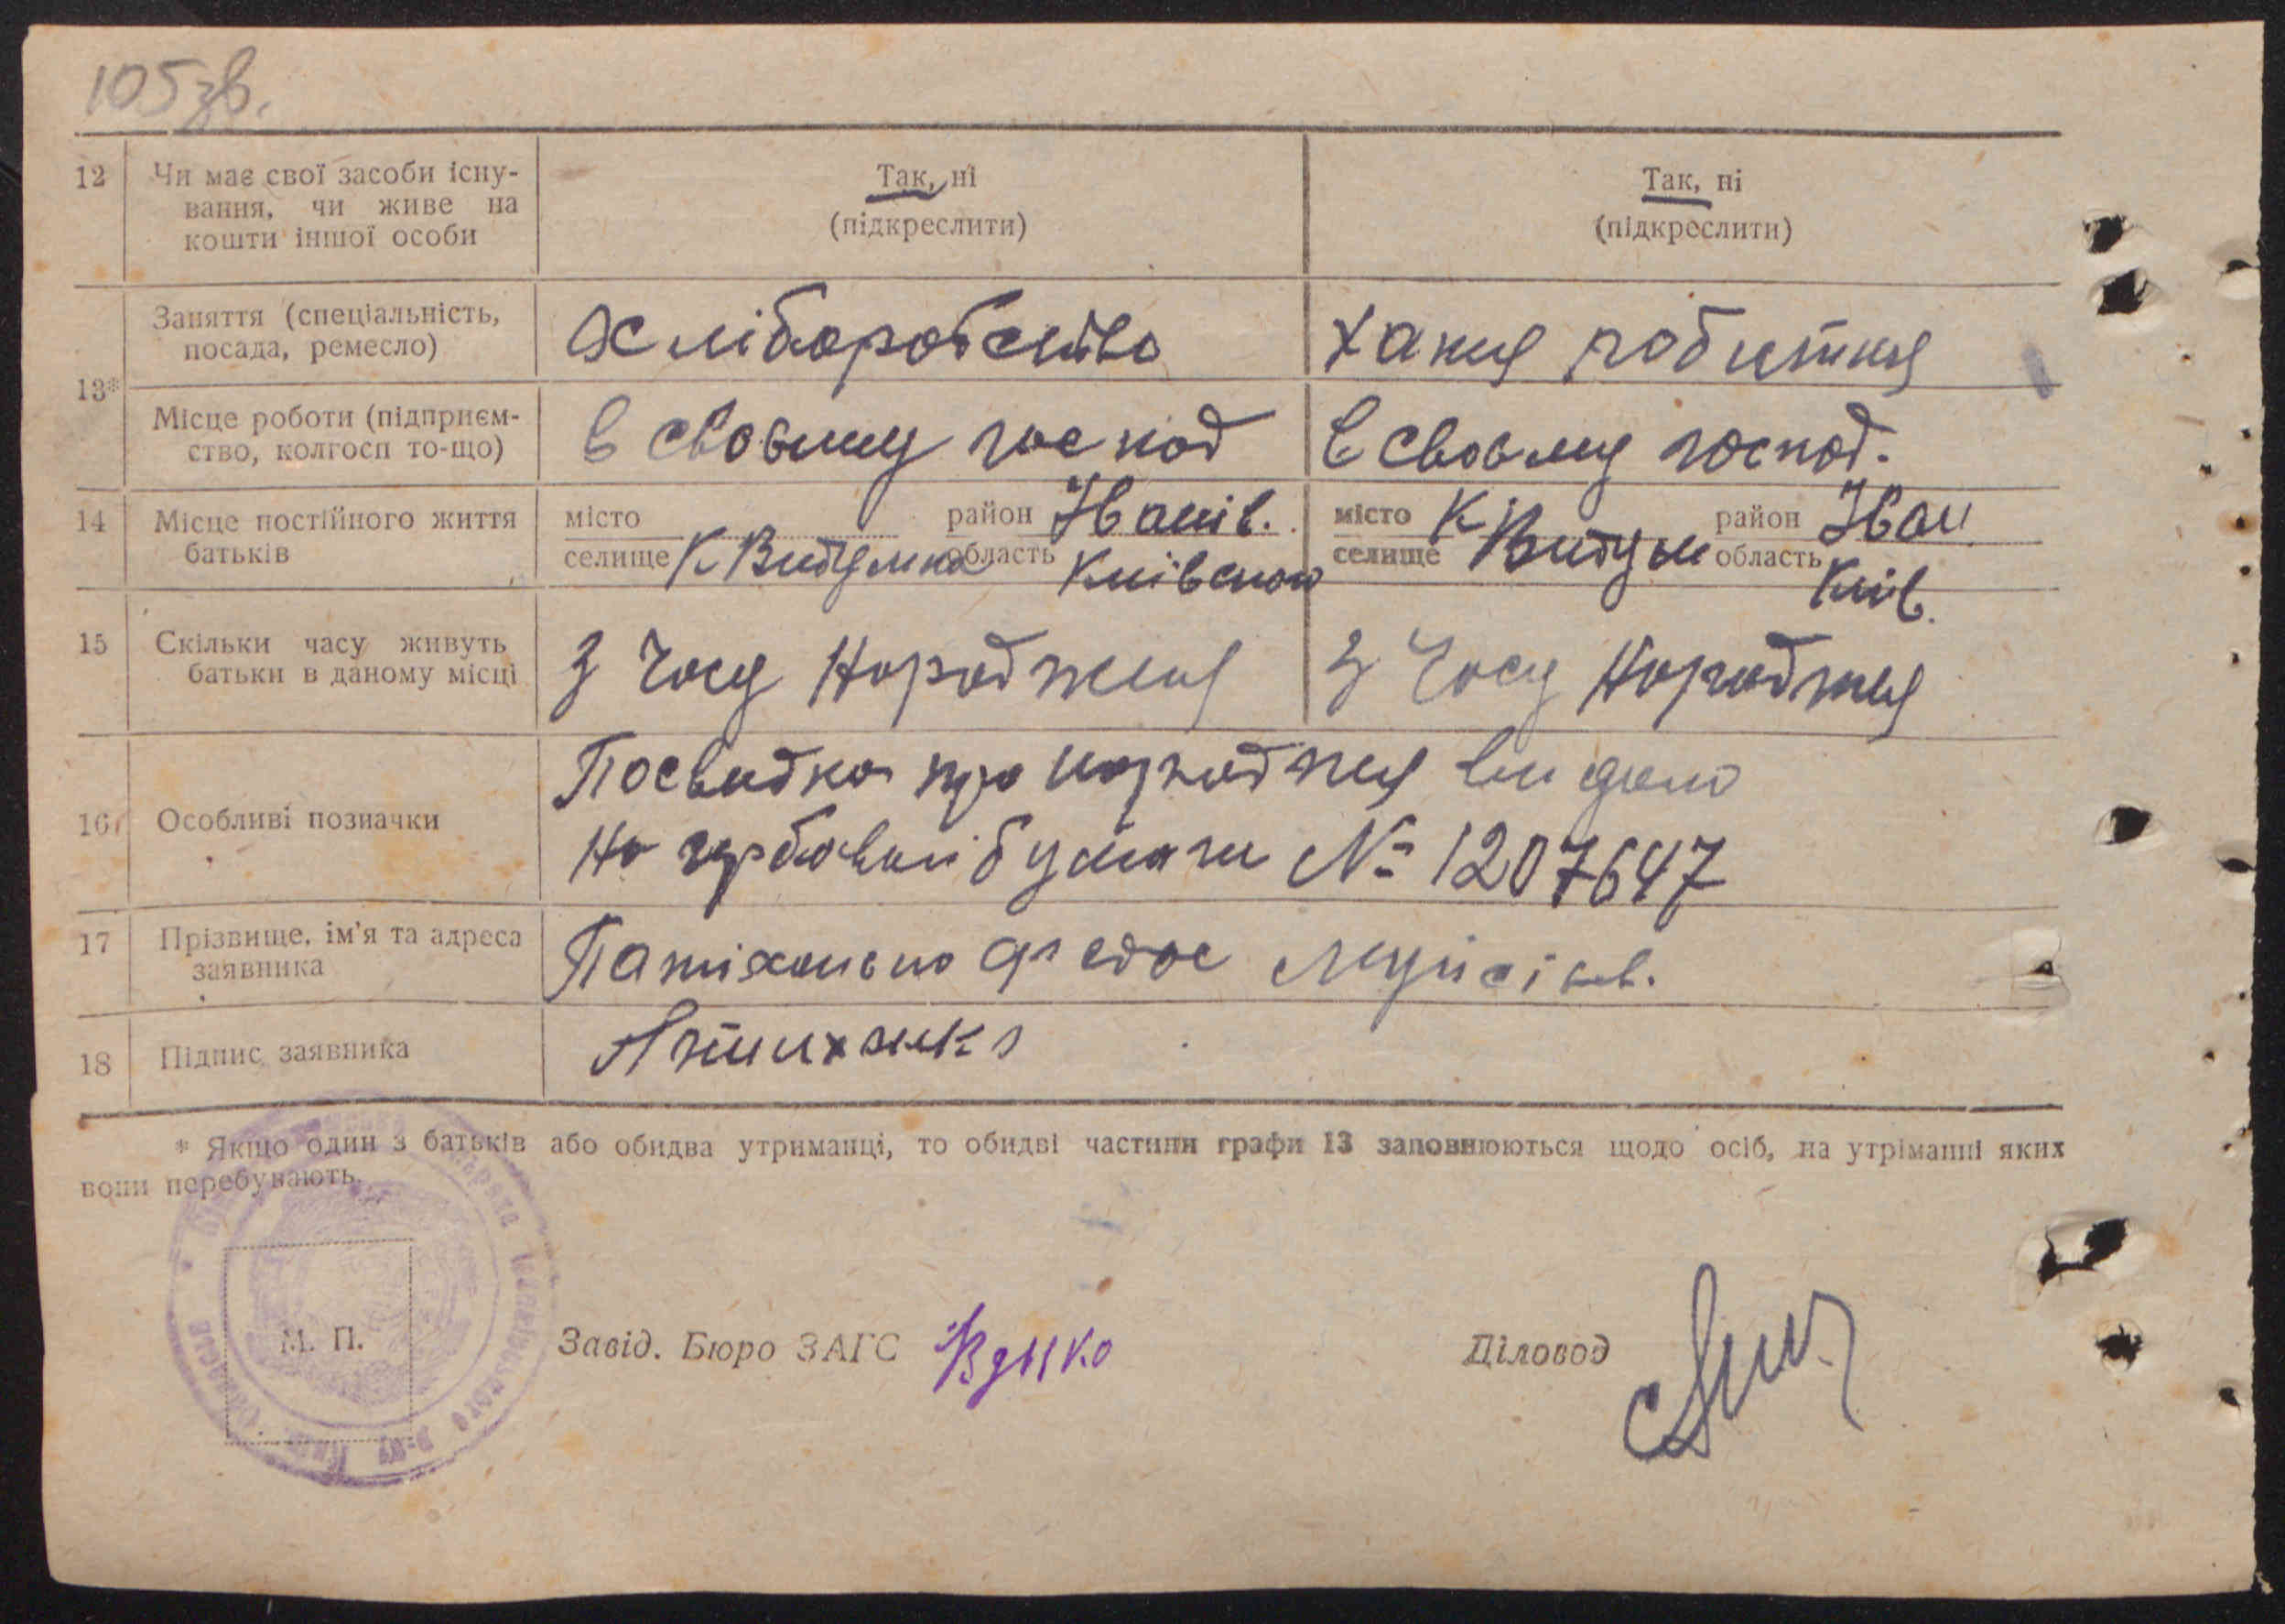 105 зв.
12 Чи має свої засоби існу-
вання, чи живе на
кошти іншої особи
Так, ні
(підкреслити)
Так, ні
(підкреслити)
13*
Заняття (спеціальність,
посада, ремесло)
Хліборобство
хатня робітня
Місце роботи (підприєм-
ство, колгосп то-що)
в своєму господ
в своєму господ.
14 Місце постійного життя
батьків
місто район Іванів.
селище К Видумка область Київською
місто К район Іван
селище Видум область Київ.
15 Скільки часу живуть
батьки в даному місці
З часу народженя
З часу народжня
16 Особливі позначки
Посвидка про народжня видано
на гербовій бумаги № 1207647
17 Прізвище, ім'я та адреса
заявника
Федос
18 Підпис заявника
* Якщо один з батьків або обидва утриманці, то обидві частини графи 13 заповнюються щодо осіб, на утріманні яких
вони перебувають.
М. П.
Завід. Бюро ЗАГС
Діловод